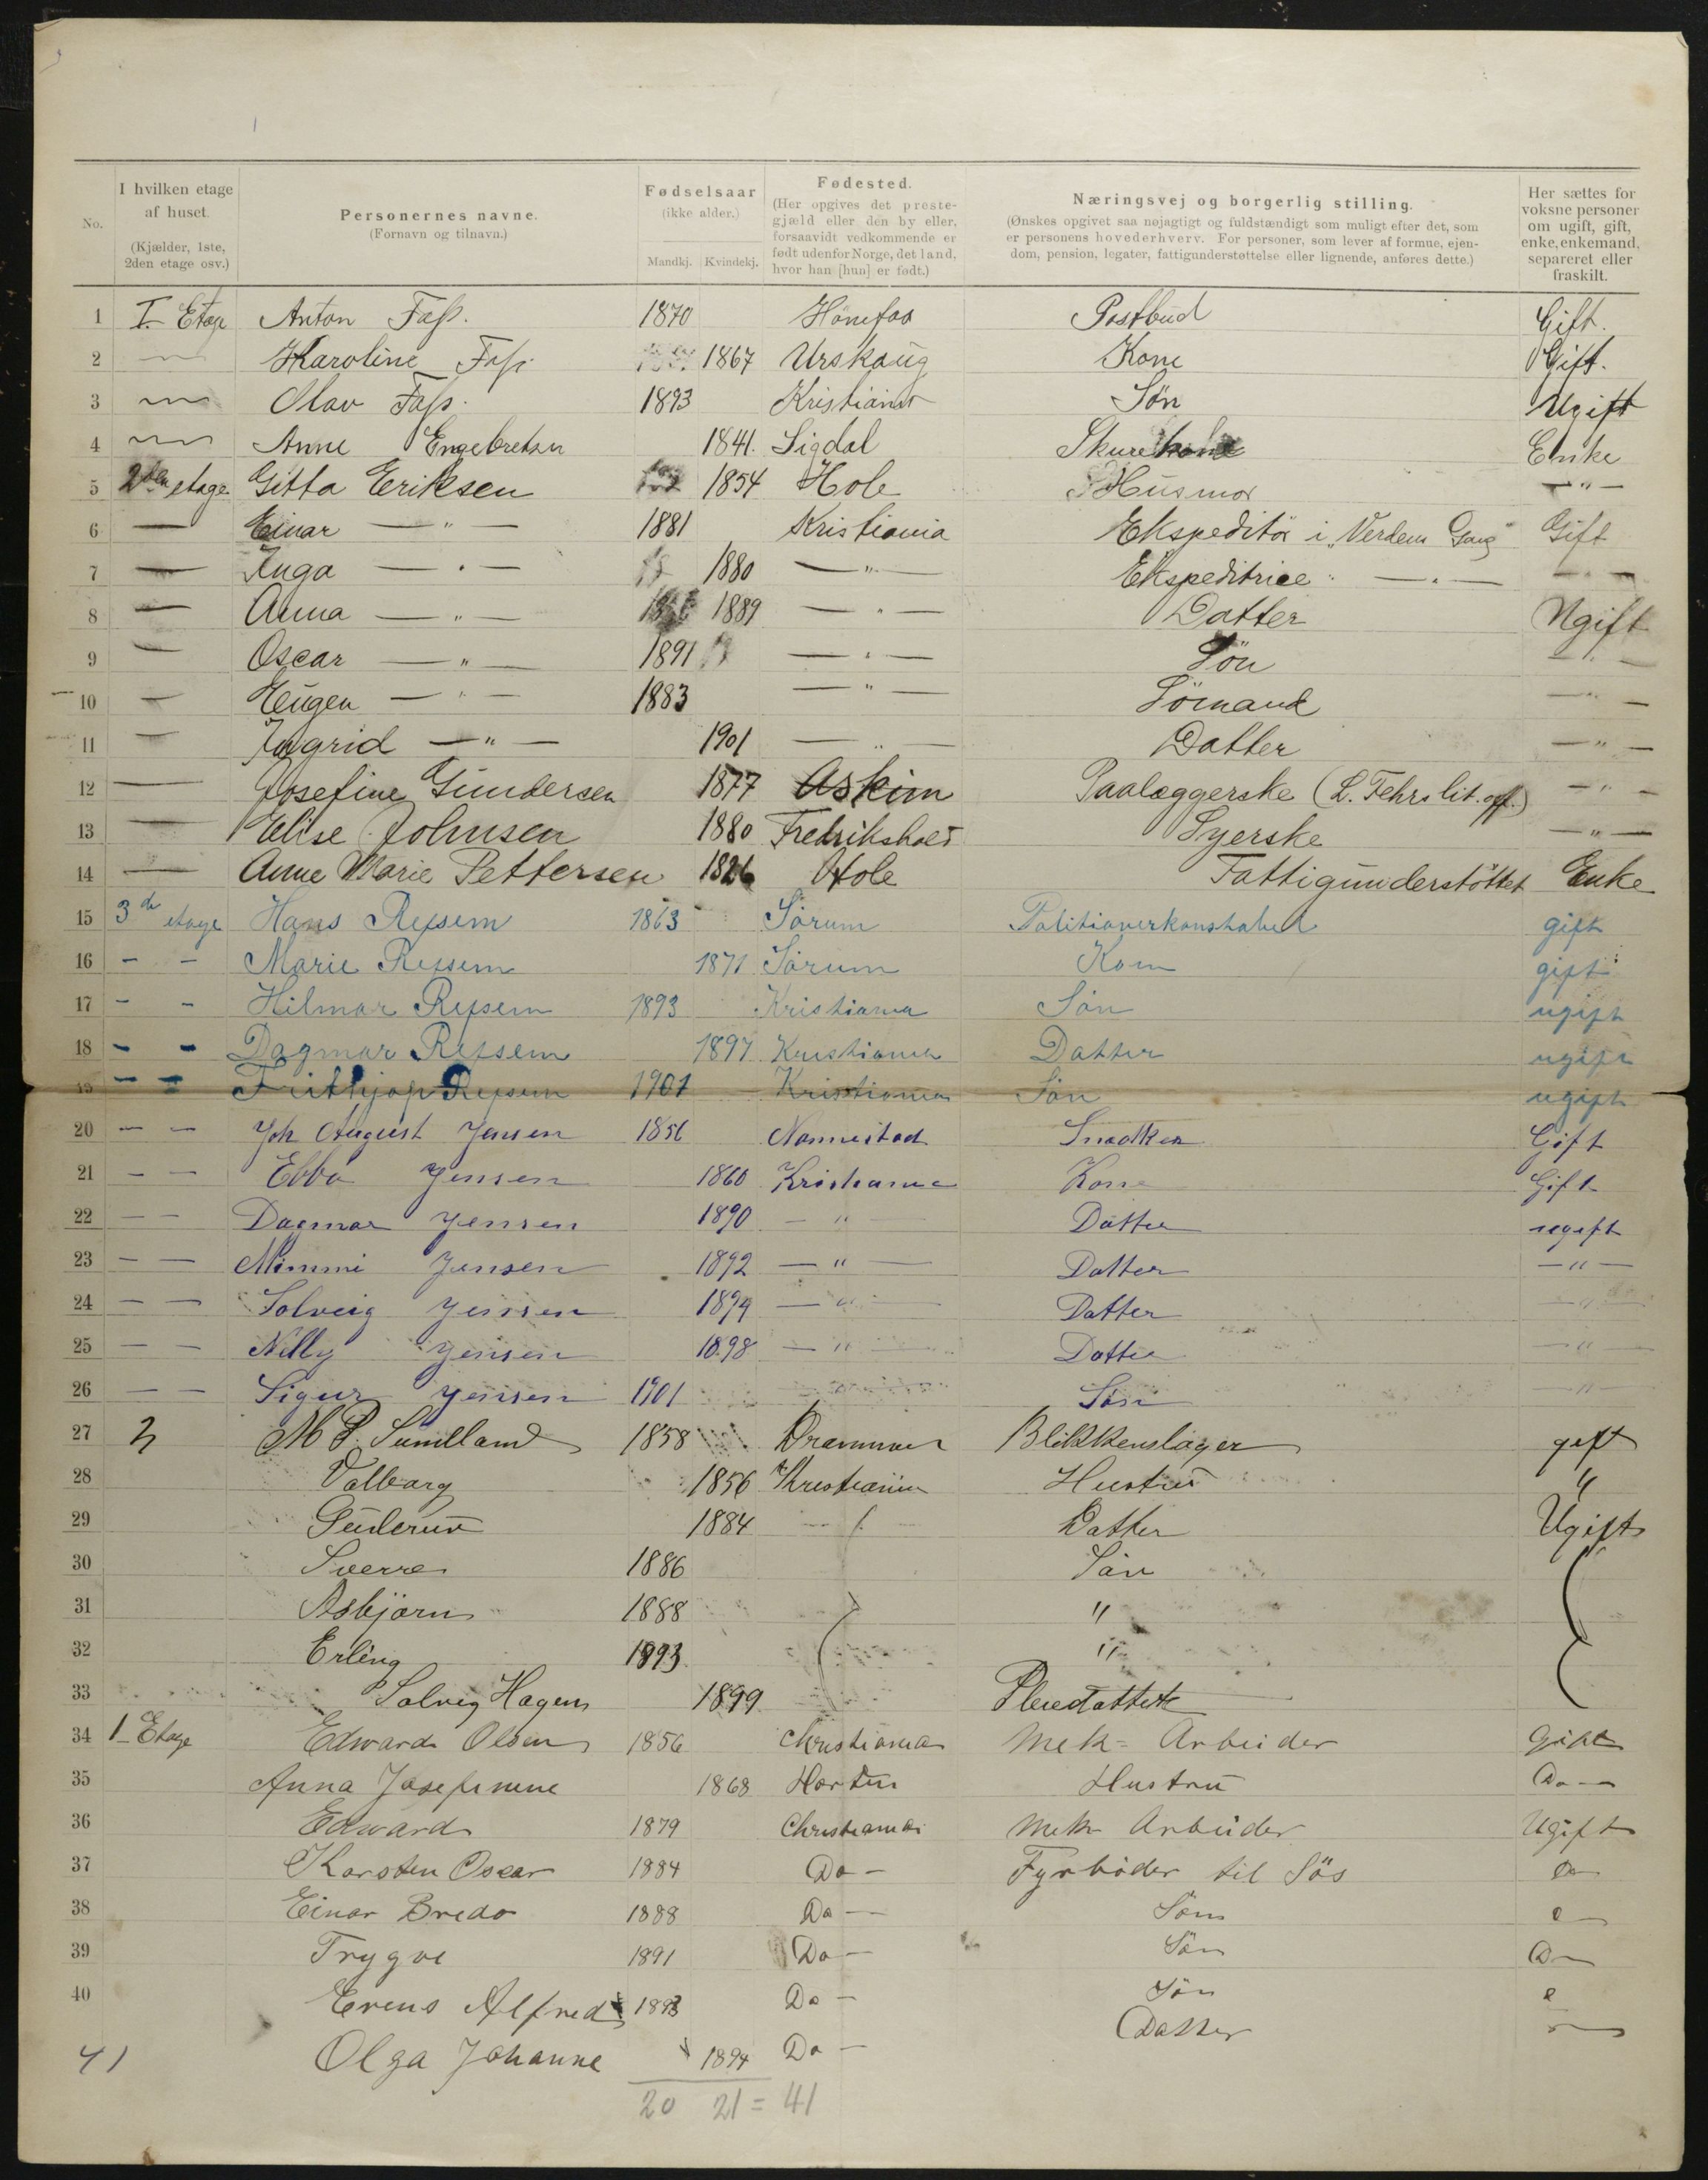 No.
I hvilken etage af huset. (Kjælder, 1ste, 2den etage osv.)
Personernes navne. (Fornavn og tilnavn.)
Fødselsaar (ikke alder.) Mandkj. Kvindekj.
Fødested. (Her opgives det prestegjæld eller den by eller, forsaavidt vedkommende er født udenfor Norge, det land, hvor han [hun] er født.)
Næringsvej og borgerlig stilling. (Ønskes opgivet saa nøjagtigt og fuldstændigt som muligt efter det, som er personens hovederhverv. For personer, som lever af formue, ejendom, pension, legater, fattigunderstøttelse eller lignende, anføres dette.)
Her sættes for voksne personer om ugift, gift, enke, enkemand, separeret eller fraskilt.
1 I. Etage Anton Fass. 1870 Hønefos Postbud Gift.
2 Karoline Fass 1867 Urskaug Kone Gift.
3 Olav Fass. 1893 Kristiania Søn Ugift
4 Anne Engebretsen 1841. Sigdal Skurekone Enke
5 2den etage Gitta Eriksen 1854 Hole Husmor — " —
6 — Einar — " — 1881 Kristiania Ekspeditör i „Verdens Gang" Gift
7 — Inga — " — 1880 — " — Ekspeditrice — " — — " —
8 — Anna — " — 1889 — " — Datter Ugift
9 — Oscar — " — 1891 — " — Sön — " —
10 — Eugen — " — 1883 — " — Sömand — " —
11 — Ingrid — " — 1901 — " — Datter — " —
12 — Josefine Gundersen 1877 Askim Paalæggerske (L. Fehrs lit. off.) — " —
13 — Elise Johnsen 1880 Fredrikshald Syerske — " —
14 — Anne Marie Pettersen 1826 Hole Fattigunderstöttet Enke
15 3de etage Hans Refsem 1863 Sörum Politioverkonstabel gift
16 - - Marie Refsem 1871 Sörum Kone gift
17 - - Hilmar Refsem 1893 Kristiania Sön ugift
18 - - Dagmar Refsem 1897 Kristiania Datter ugift
19 - - Frithjof Refsem 1901 Kristiania Sön ugift
20 — — Joh August Jensen 1856 Nannestad Snedker Gift
21 — — Ebba Jensen 1860 Kristiania Kone Gift
22 — — Dagmar Jensen 1890 — " — Datter ugift
23 — — Mimmi Jensen 1892 — " — Datter — " —
24 — — Solveig Jensen 1894 — " — Datter — " —
25 — — Nelly Jensen 1898 — " — Datter — " —
26 — — Sigur Jensen 1901 — " — Sön — " —
27 2 M P. Sundland 1858 Drammen Blikkenslager gift
28 Valborg 1856 Kristiania Hustru "
29 Guderun 1884 — " — Datter Ugift
30 Sverre 1886 Sön
31 Asbjørn 1888 "
32 Erling 1893 "
33 Solveig Hagen 1899 Pleiedatter
34 1 Etage Edward Olsen 1856 Christiania Mek- Arbeider Gift
35 Anna Josefinene 1868 Horten Hustru Do —
36 Edward 1879 Christiania Mek- Arbeider Ugift
37 Karsten Oscar 1884 Do — Fyrböder til Sös Do
38 Einar Bredo 1888 Do — Sön
39 Trygve 1891 Do — Sön Do
40 Erens Alfred 1893 Do — Sön
41 Olga Johanne 1894 Do — Datter
20 21 = 41